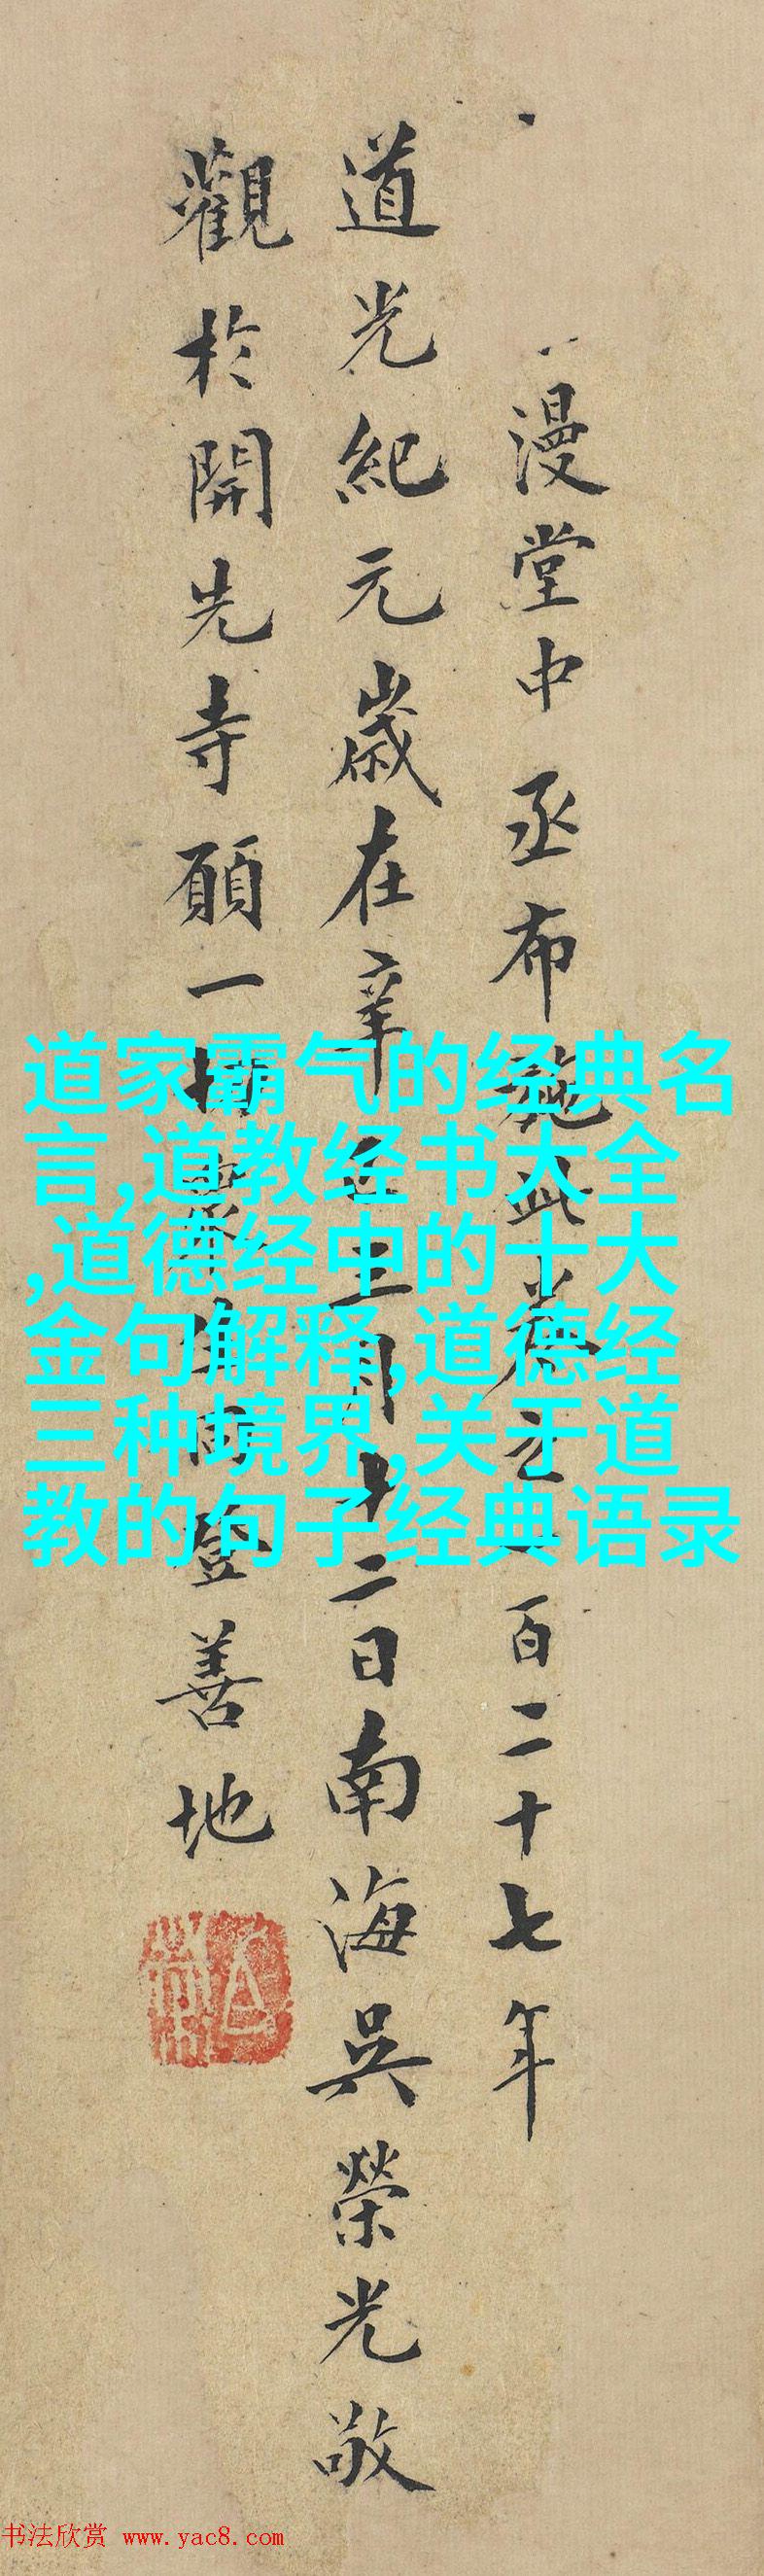 漫堂中丞布施此卷之百二十七年
道光紀元歲在辛巳三月十二日南海吳榮光敬
觀於開先寺願一切眾生同登善地
道家霸气的经典名
言,道教经书大全
,道德经中的十大
金句解释,道德经
三种境界,关于道
教的句子经典语录
书法欣赏 www.yac8.com